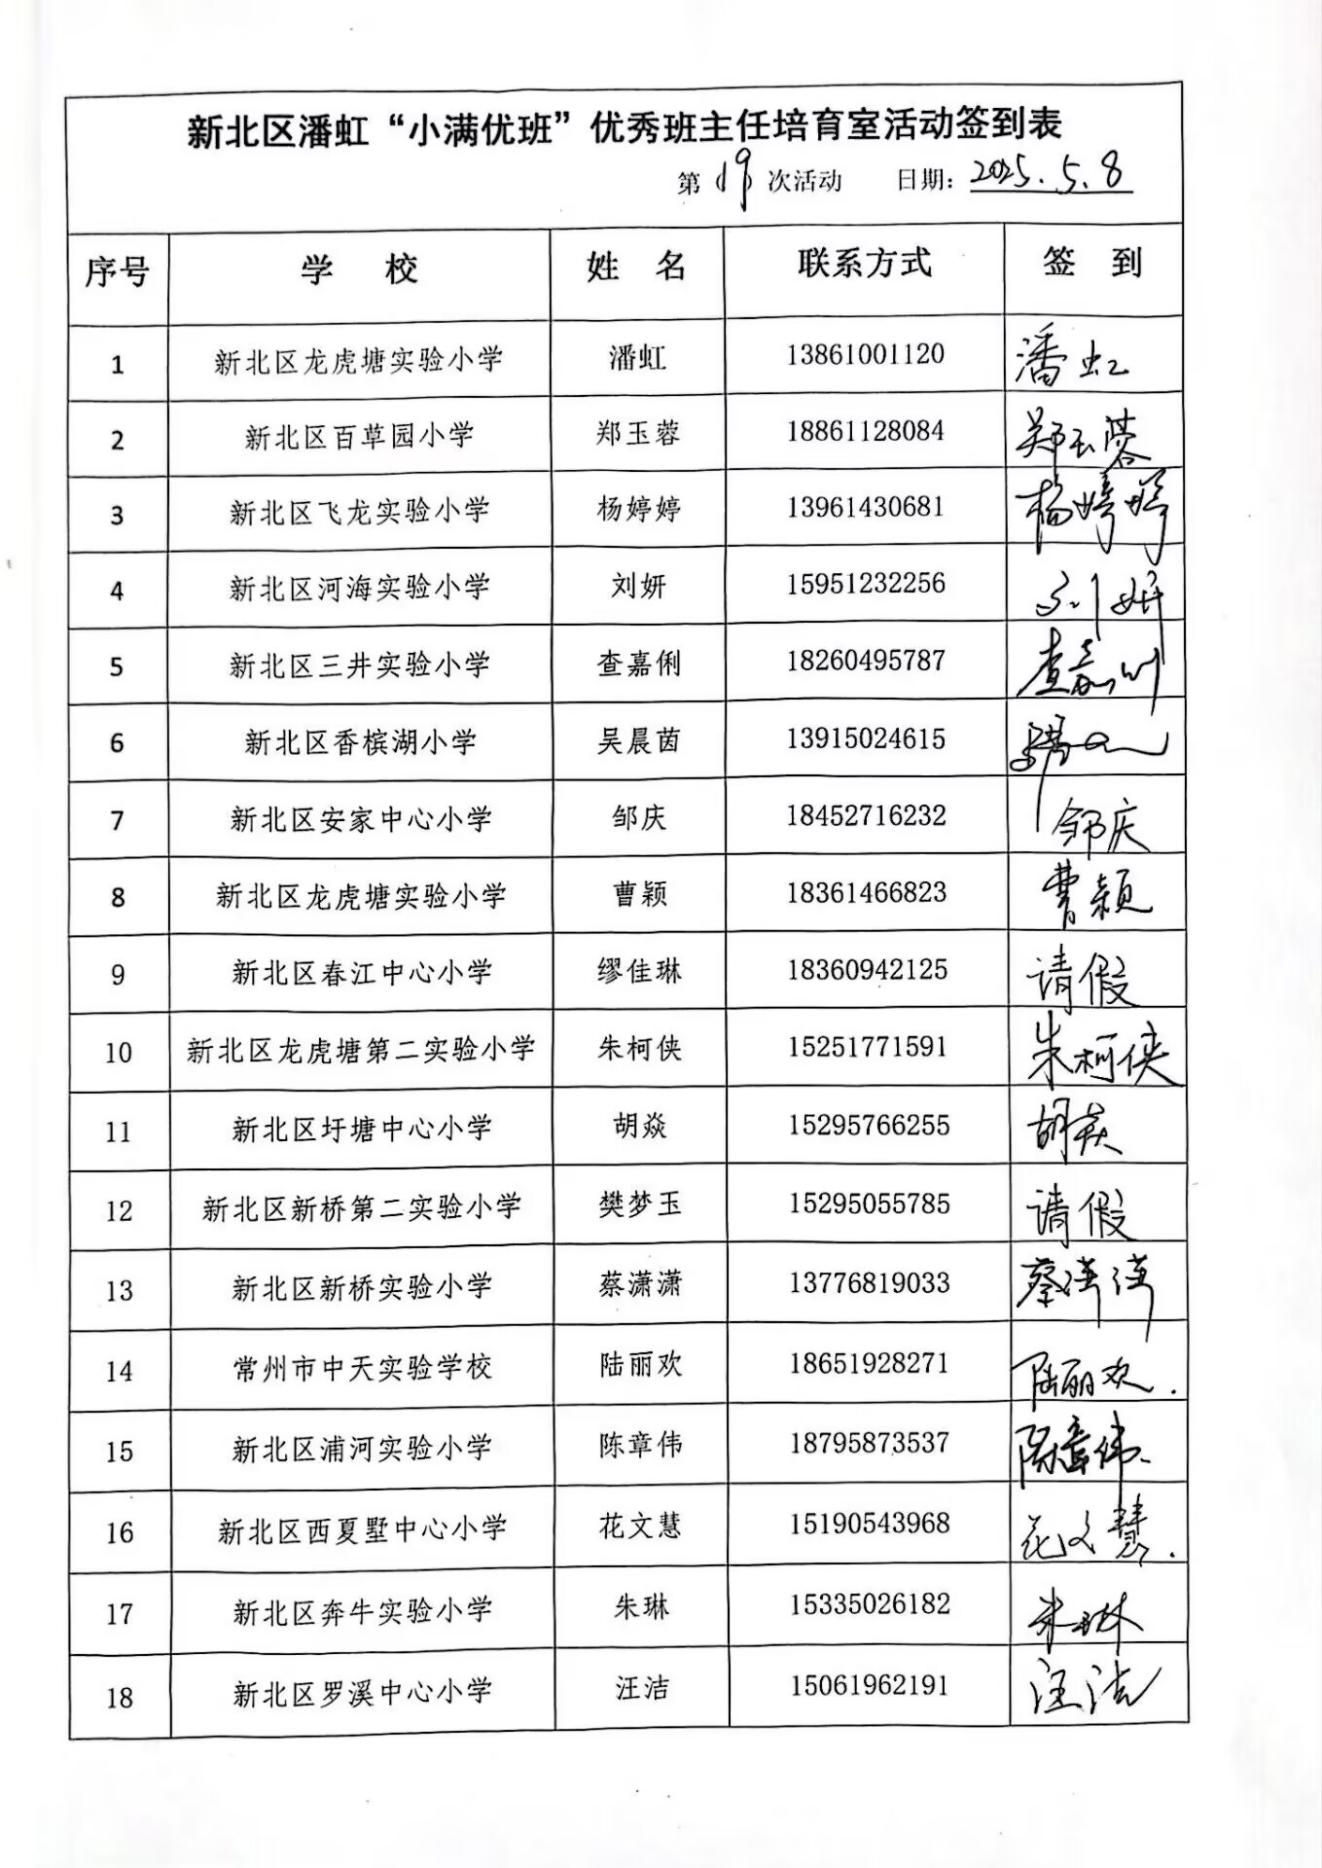 新北区潘虹“小满优班”优秀班主任培育室活动签到表
第(19)次活动 日期：2025.5.8
序号 学校 姓名 联系方式 签到
1 新北区龙虎塘实验小学 潘虹 13861001120 潘虹
2 新北区百草园小学 郑玉蓉 18861128084 郑玉蓉
3 新北区飞龙实验小学 杨婷婷 13961430681 杨婷婷
4 新北区河海实验小学 刘妍 15951232256 刘妍
5 新北区三井实验小学 查嘉俐 18260495787 查嘉俐
6 新北区香槟湖小学 吴晨茵 13915024615
7 新北区安家中心小学 邹庆 18452716232 邹庆
8 新北区龙虎塘实验小学 曹颖 18361466823 曹颖
9 新北区春江中心小学 缪佳琳 18360942125 请假
10 新北区龙虎塘第二实验小学 朱柯侠 15251771591 朱柯侠
11 新北区圩塘中心小学 胡焱 15295766255 胡焱
12 新北区新桥第二实验小学 樊梦玉 15295055785 请假
13 新北区新桥实验小学 蔡潇潇 13776819033 蔡潇潇
14 常州市中天实验学校 陆丽欢 18651928271 陆丽欢.
15 新北区浦河实验小学 陈章伟 18795873537 陈章伟.
16 新北区西夏墅中心小学 花文慧 15190543968 花文慧.
17 新北区奔牛实验小学 朱琳 15335026182 朱琳
18 新北区罗溪中心小学 汪洁 15061962191 汪洁